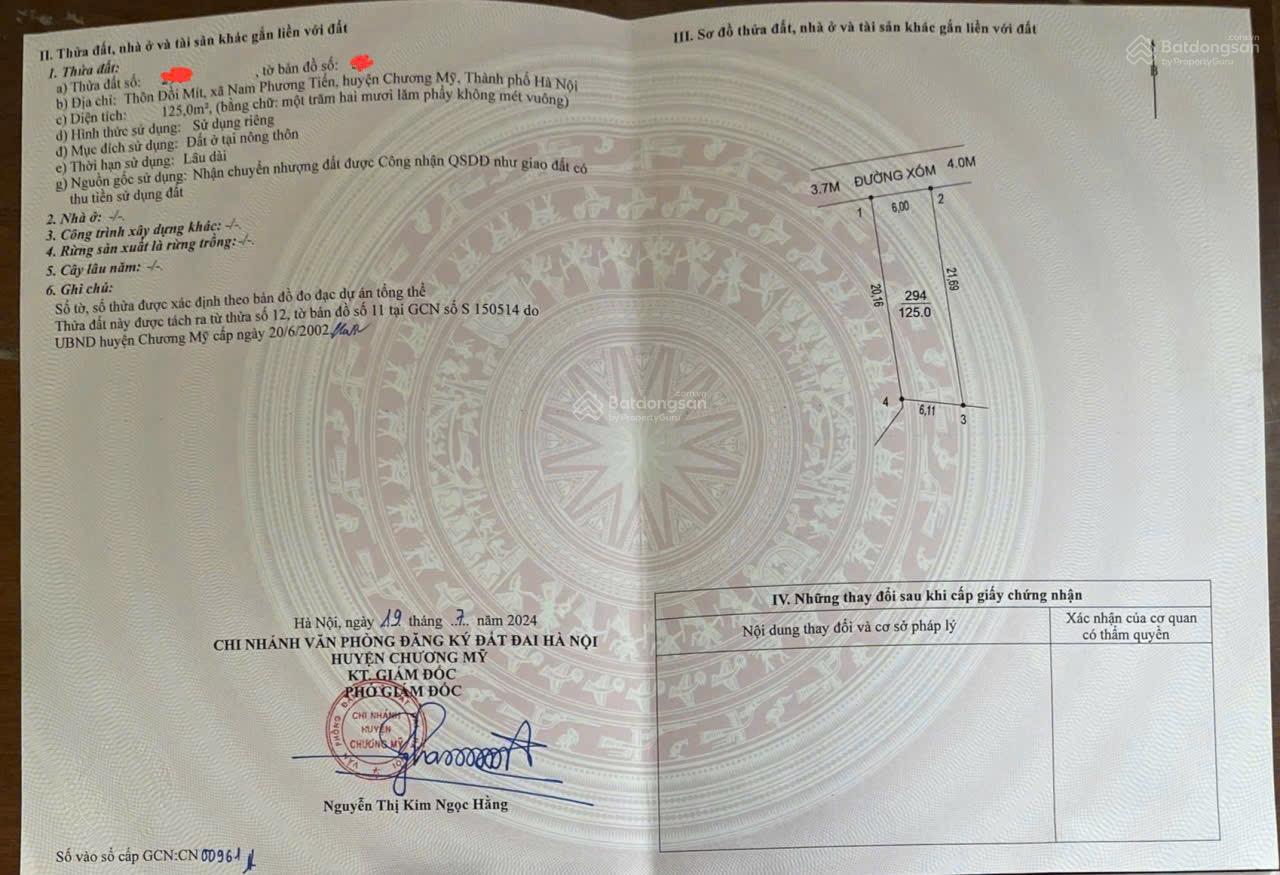 II. Thửa đất, nhà ở và tài sản khác gắn liền với đất
1. Thửa đất:
a) Thửa đất số: , tờ bản đồ số:
b) Địa chỉ: Thôn Đồi Mít, xã Nam Phương Tiến, huyện Chương Mỹ, Thành phố Hà Nội
c) Diện tích: 125,0m², (bằng chữ: một trăm hai mươi lăm phẩy không mét vuông)
d) Hình thức sử dụng: Sử dụng riêng
đ) Mục đích sử dụng: Đất ở tại nông thôn
e) Thời hạn sử dụng: Lâu dài
g) Nguồn gốc sử dụng: Nhận chuyển nhượng đất được Công nhận QSDĐ như giao đất có
thu tiền sử dụng đất
2. Nhà ở: -/-.
3. Công trình xây dựng khác: -/-.
4. Rừng sản xuất là rừng trồng:-/-.
5. Cây lâu năm: -/-.
6. Ghi chú:
Số tờ, số thửa được xác định theo bản đồ đo đạc dự án tổng thể
Thửa đất này được tách ra từ thửa số 12, tờ bản đồ số 11 tại GCN số S 150514 do
UBND huyện Chương Mỹ cấp ngày 20/6/2002
Hà Nội, ngày 19 tháng .7. năm 2024
CHI NHÁNH VĂN PHÒNG ĐĂNG KÝ ĐẤT ĐAI HÀ NỘI
HUYỆN CHƯƠNG MỸ
KT. GIÁM ĐỐC
PHÓ GIÁM ĐỐC
CHI NHÁNH
HUYỆN
CHƯƠNG MỸ
Nguyễn Thị Kim Ngọc Hằng
Số vào sổ cấp GCN:CN 00961
III. Sơ đồ thửa đất, nhà ở và tài sản khác gắn liền với đất
Batdongsan.com.vn
by PropertyGuru
B
3.7M ĐƯỜNG XÓM 4.0M
1 6,00 2
20,16
21,69
294
125.0
4 6,11 3
Batdongsan.com.vn
by PropertyGuru
IV. Những thay đổi sau khi cấp giấy chứng nhận
Nội dung thay đổi và cơ sở pháp lý
Xác nhận của cơ quan
có thẩm quyền